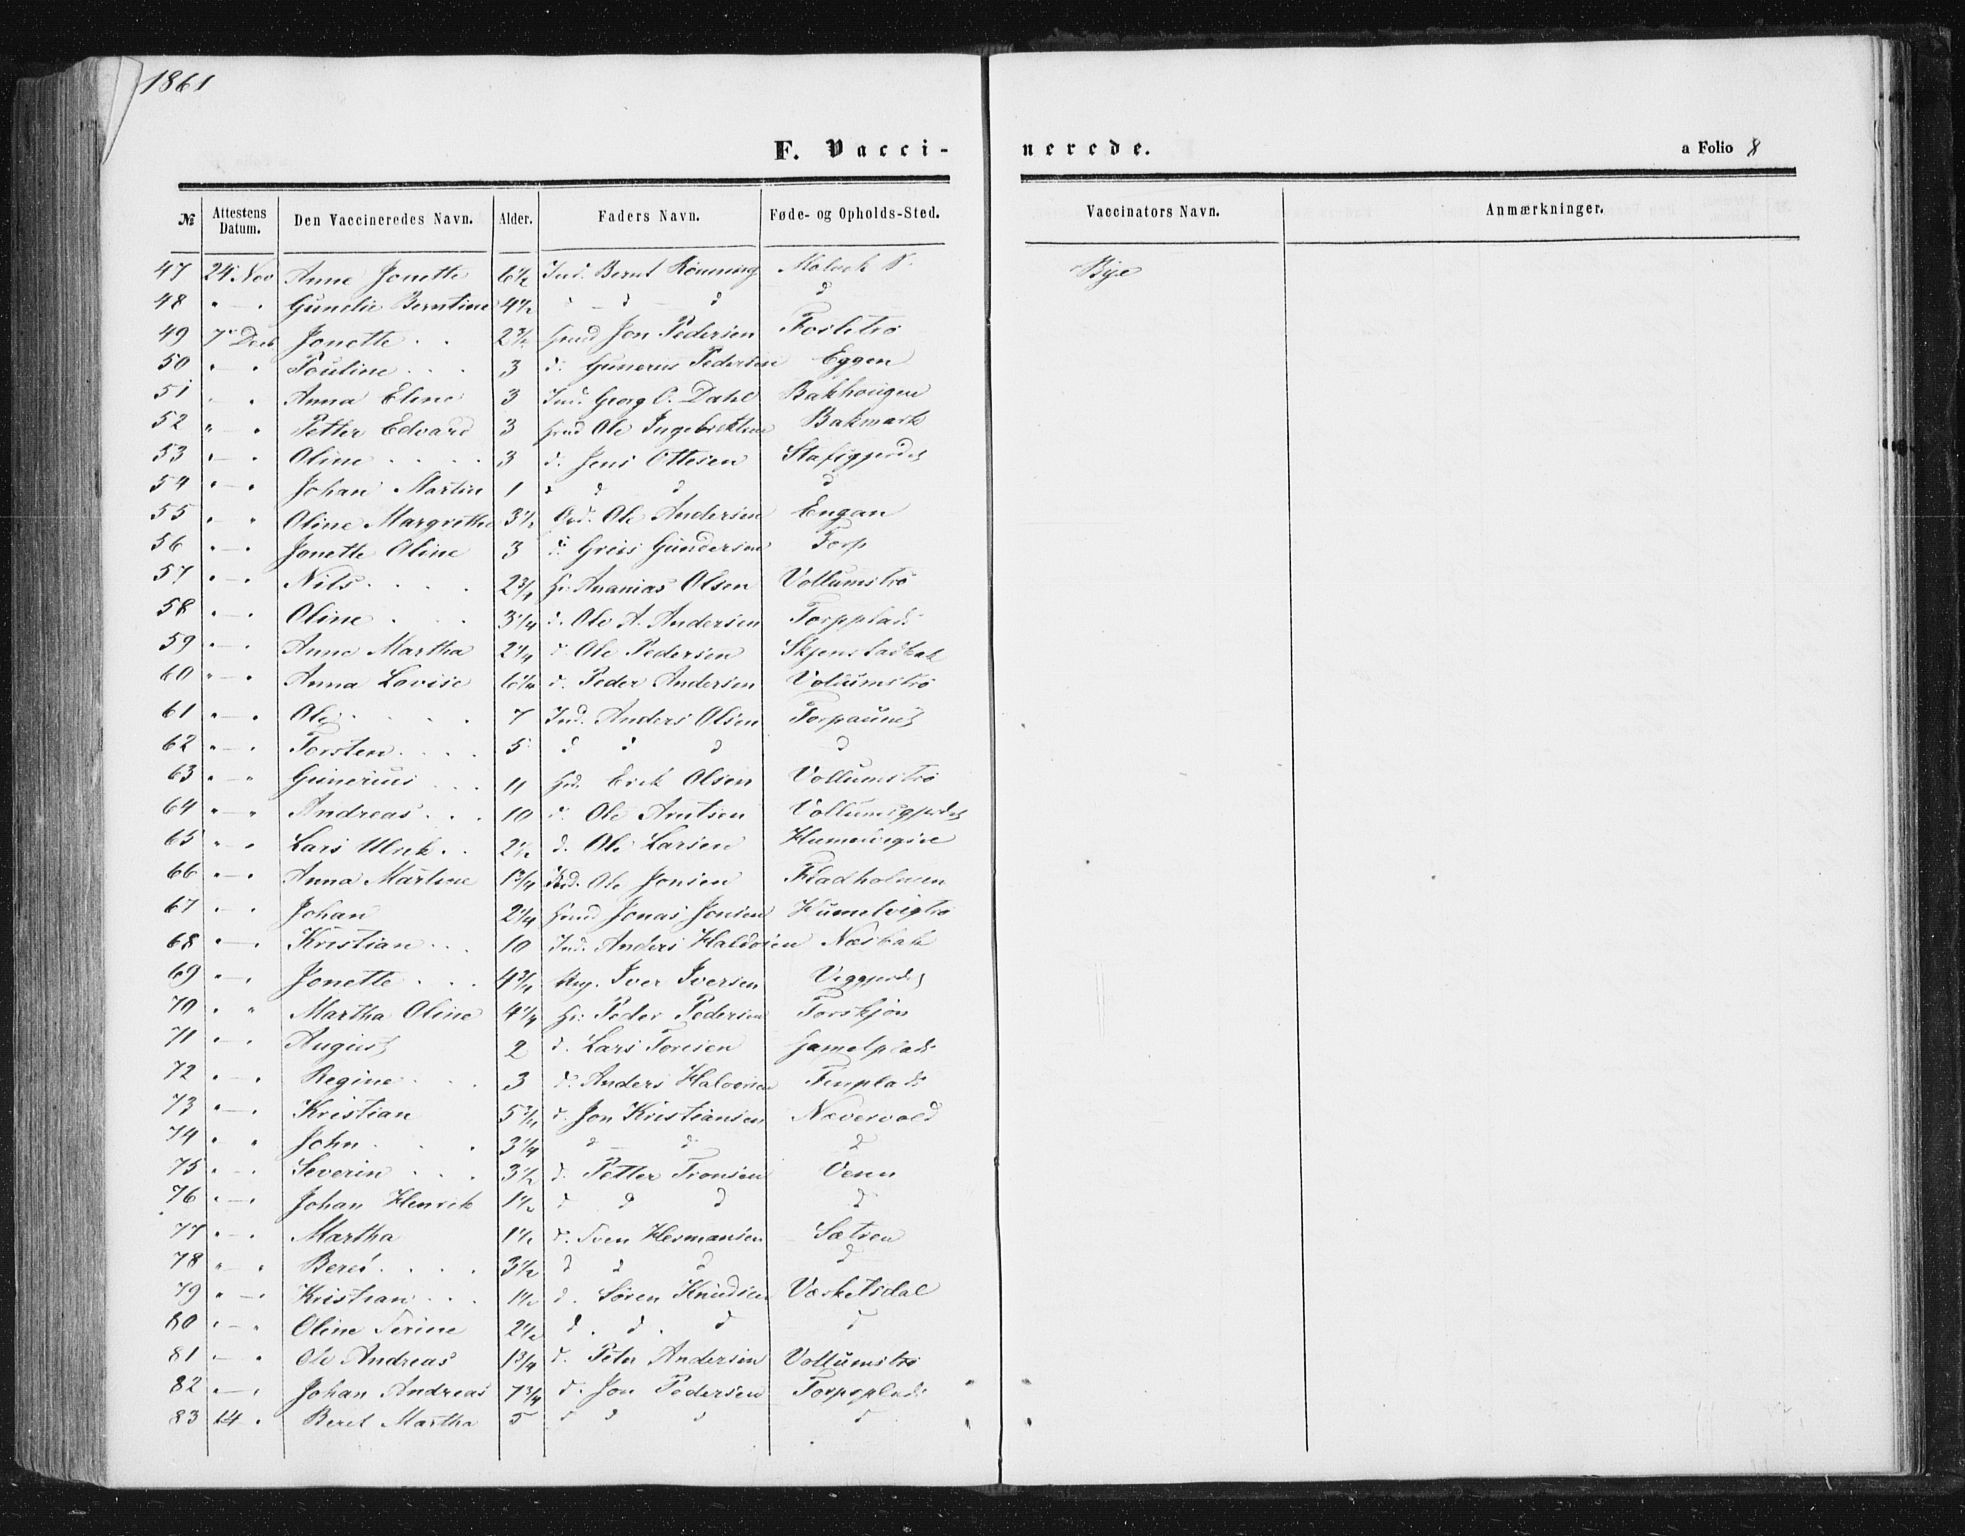 1861
F. Vacci- nerede. a Folio 8
№ Attestens Datum. Den Vaccineredes Navn. Alder. Faders Navn. Føde- og Opholds-Sted. Vaccinators Navn. Anmærkninger.
47 24 Nov Anne Jonette 6½ Ind. Bernt Rönning Malvik Bye
48 " — " Gunelie Berntine 4½ d — d d
49 7 Decb Jonette . . Jon Pedersen Fosletrö
50 " " Pouline . . . 3 d. Gunerius Pedersen Eggen
51 " " Anna Eline 3 Ind. Georg P. Dahl Bakhougen
52 " " Petter Edvard 3 Ole Ingebrektsen Bakmark
53 " — " Oline . . . . 3 d. Jens Ottesen
54 " — " Johan Martin 1 d d d d
55 " " Oline Margrethe 3½ Ole Andersen Engan
56 " — " Jonette Oline 3 d. Greis Gundersen Torp
57 " — " Nils . . . . 2¾ Ananias Olsen Vollumströ
58 " — " Oline . . . 3¼ d. Ole A. Andersen Torpplads
59 " — " Anne Martha 2¼ d Ole Pedersen Skjenstadbak
60 " — " Anna Lovise 6¼ d. Peder Andersen Vollumströ
61 " — " Ole . . . . 7 Ind. Anders Olsen Torpaunet
62 " — " Torsten . . . . 5 d d d d
63 " — " Gunerius . . . 11 Erik Olsen Vollumströ
64 " — " Andreas . . . 10 d. Ole Arntsen Vollumsgjerdet
65 " " Lars Ulrik . . 2½ d. Ole Larsen
66 " — " Anna Martine 1¾ Ind. Ole Jonsen Fladholmen
67 " — " Johan 2¼ Jonas Jonsen Humelvigtrö
68 " — " Kristian . . . 10 Ind. Anders Haldorsen Næsbak
69 " — " Jonette . . . 4¾ Iver Iversen Viggjerdet
70 " " Martha Oline 4¼ Peder Pedersen Torskjön
71 " — " August 2 d. Lars Toresen Gamelplads
72 " — " Regine . . . 3 d. Anders Halvorsen
73 " — " Kristian 5¾ d. Jon Kristiansen Nævervold
74 " " John . . . 3¼ d — d d
75 " — " Severin . . . 3½ d. Petter Tronsen Venn
76 " — " Johan Henrik 1½ d d d d
77 " — " Martha 1½ d. Sven Hermansen Sætren
78 " — " Beret . . . . 3½ d d d d
79 " — " Kristian . . . 1½ d. Sören Knudsen Væsketsdal
80 " — " Oline Serine 2½ d . d . d d
81 " — " Ole Andreas 1¾ d. Peter Andersen Vollumströ
82 " — " Johan Andreas 7¾ d. Jon Pedersen Torpsplads
83 14 " Beret Martha 5 d d d d